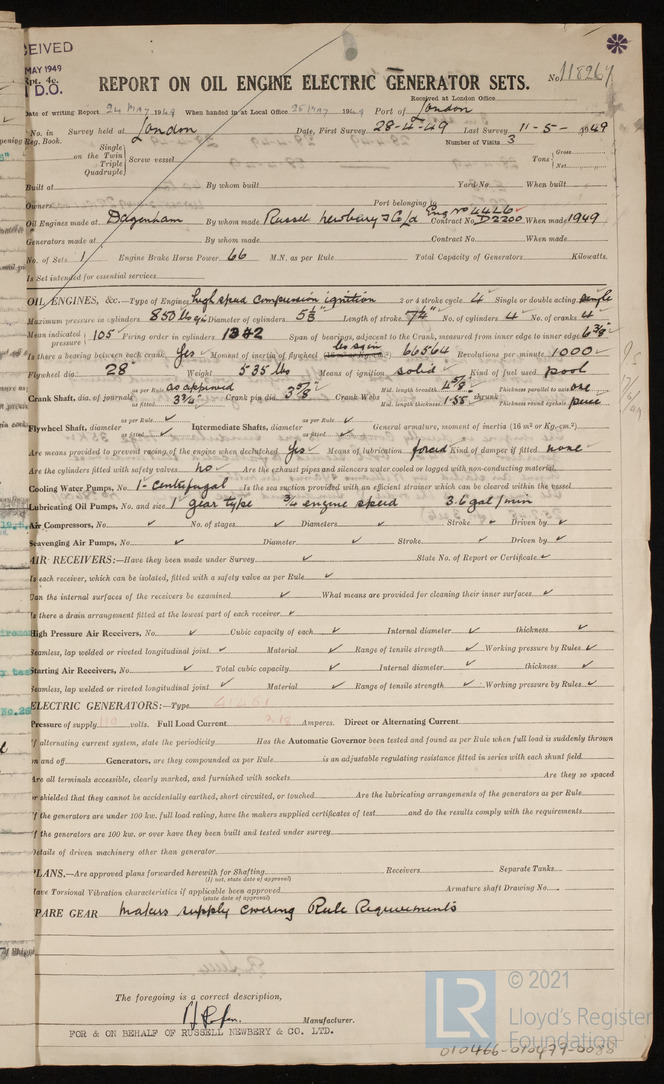 CEIVED
MAY 1949
Rpt. 4c.
D.O.
REPORT ON OIL ENGINE ELECTRIC GENERATOR SETS.
No. 118267
Received at London Office
Date of writing Report 24 MAY 1949 When handed in at Local Office 25 MAY 1949 Port of London
No. in Survey held at London Date, First Survey 28-4-49 Last Survey 11-5- 1949
Reg. Book.
Number of Visits 3
Single
on the Twin
Triple
Quadruple
Screw vessel
Tons Gross
Net
Built at By whom built Yard No. When built
Owners Port belonging to
Eng No 4426
Oil Engines made at Dagenham By whom made Russel Newbury & Co Ld Contract No. D2200 When made 1949
Generators made at By whom made Contract No. When made
No. of Sets 1 Engine Brake Horse Power 66 M.N. as per Rule Total Capacity of Generators Kilowatts.
Is Set intended for essential services
OIL ENGINES, &c.—Type of Engines high speed Compression ignition 2 or 4 stroke cycle 4 Single or double acting single
Maximum pressure in cylinders 850 lbs Diameter of cylinders 5 1/8" Length of stroke 7 1/4" No. of cylinders 4 No. of cranks 4
Mean indicated pressure 105 Firing order in cylinders 1342 Span of bearings, adjacent to the Crank, measured from inner edge to inner edge 6 3/8"
Is there a bearing between each crank Yes Moment of inertia of flywheel 66564 Revolutions per minute 1000
Flywheel dia. 28" Weight 535 lbs Means of ignition solid Kind of fuel used pool
Crank Shaft, dia. of journals as per Rule as approved as fitted 3 3/4" Crank pin dia. 3 5/8" Crank Webs Mid. length breadth 4 5/8" Mid. length thickness 1.55 shrunk Thickness parallel to axis one Thickness round eyehole piece
Flywheel Shaft, diameter as per Rule as fitted Intermediate Shafts, diameter as per Rule as fitted General armature, moment of inertia (16 m² or Kg.-cm.²)
Are means provided to prevent racing of the engine when declutched Yes Means of lubrication forced Kind of damper if fitted none
Are the cylinders fitted with safety valves no Are the exhaust pipes and silencers water cooled or lagged with non-conducting material
Cooling Water Pumps, No. 1- Centrifugal Is the sea suction provided with an efficient strainer which can be cleared within the vessel
Lubricating Oil Pumps, No. and size 1 gear type 3/4 engine speed 3.6 gal/min
Air Compressors, No. No. of stages Diameters Stroke Driven by
Scavenging Air Pumps, No. Diameter Stroke Driven by
AIR RECEIVERS:—Have they been made under Survey State No. of Report or Certificate
Is each receiver, which can be isolated, fitted with a safety valve as per Rule
Can the internal surfaces of the receivers be examined What means are provided for cleaning their inner surfaces
Is there a drain arrangement fitted at the lowest part of each receiver
High Pressure Air Receivers, No. Cubic capacity of each Internal diameter thickness
Seamless, lap welded or riveted longitudinal joint Material Range of tensile strength Working pressure by Rules
Starting Air Receivers, No. Total cubic capacity Internal diameter thickness
Seamless, lap welded or riveted longitudinal joint Material Range of tensile strength Working pressure by Rules
ELECTRIC GENERATORS:—Type
Pressure of supply 110 volts. Full Load Current 318 Amperes. Direct or Alternating Current
If alternating current system, state the periodicity Has the Automatic Governor been tested and found as per Rule when full load is suddenly thrown
on and off Generators, are they compounded as per Rule is an adjustable regulating resistance fitted in series with each shunt field
Are all terminals accessible, clearly marked, and furnished with sockets Are they so spaced
or shielded that they cannot be accidentally earthed, short circuited, or touched Are the lubricating arrangements of the generators as per Rule
If the generators are under 100 kw. full load rating, have the makers supplied certificates of test and do the results comply with the requirements
If the generators are 100 kw. or over have they been built and tested under survey
Details of driven machinery other than generator
PLANS.—Are approved plans forwarded herewith for Shafting Receivers Separate Tanks
(If not, state date of approval)
Have Torsional Vibration characteristics if applicable been approved Armature shaft Drawing No.
(state date of approval)
SPARE GEAR Makers supply covering Rule Requirements
The foregoing is a correct description,
Manufacturer.
FOR & ON BEHALF OF RUSSELL NEWBERY & CO. LTD.
LR
© 2021
Lloyd's Register
Foundation
010466-010479-0088